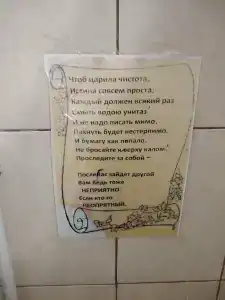 Чтоб царила чистота,
Истина совсем проста,
Каждый должен всякий раз
Смыть водою унитаз
И не надо писать мимо,
Пахнуть будет нестерпимо,
И бумагу как попало,
Не бросайте кверху калом.
Проследите за собой –
После вас зайдет другой
Вам ведь тоже
НЕПРИЯТНО
Если кто-то
НЕОПРЯТНЫЙ.